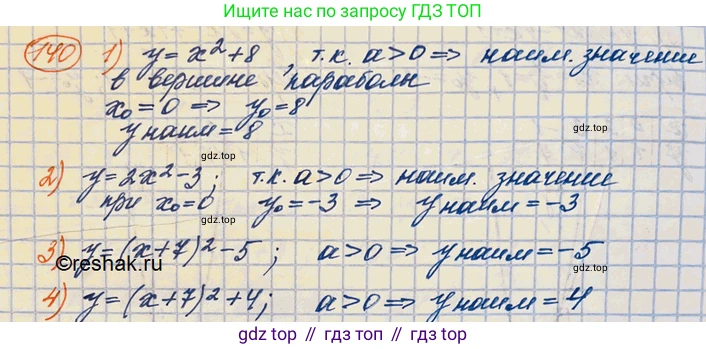 Ищите нас по запросу ГДЗ ТОП
140 1) y = x² + 8, т.к. a > 0 ⇒ наим. значение
в вершине параболы
x₀ = 0 ⇒ y₀ = 8
y наим = 8
gdz.top
gdz.top
2) y = 2x² - 3; т.к. a > 0 ⇒ наим. значение
при x₀ = 0 y₀ = -3 ⇒ y наим = -3
gdz.top
gdz.top
3) y = (x+7)² - 5; a > 0 ⇒ y наим = -5
©reshak.ru
4) y = (x+7)² + 4; a > 0 ⇒ y наим = 4
gdz.top
gdz.top
gdz top // гдз топ // gdz.top